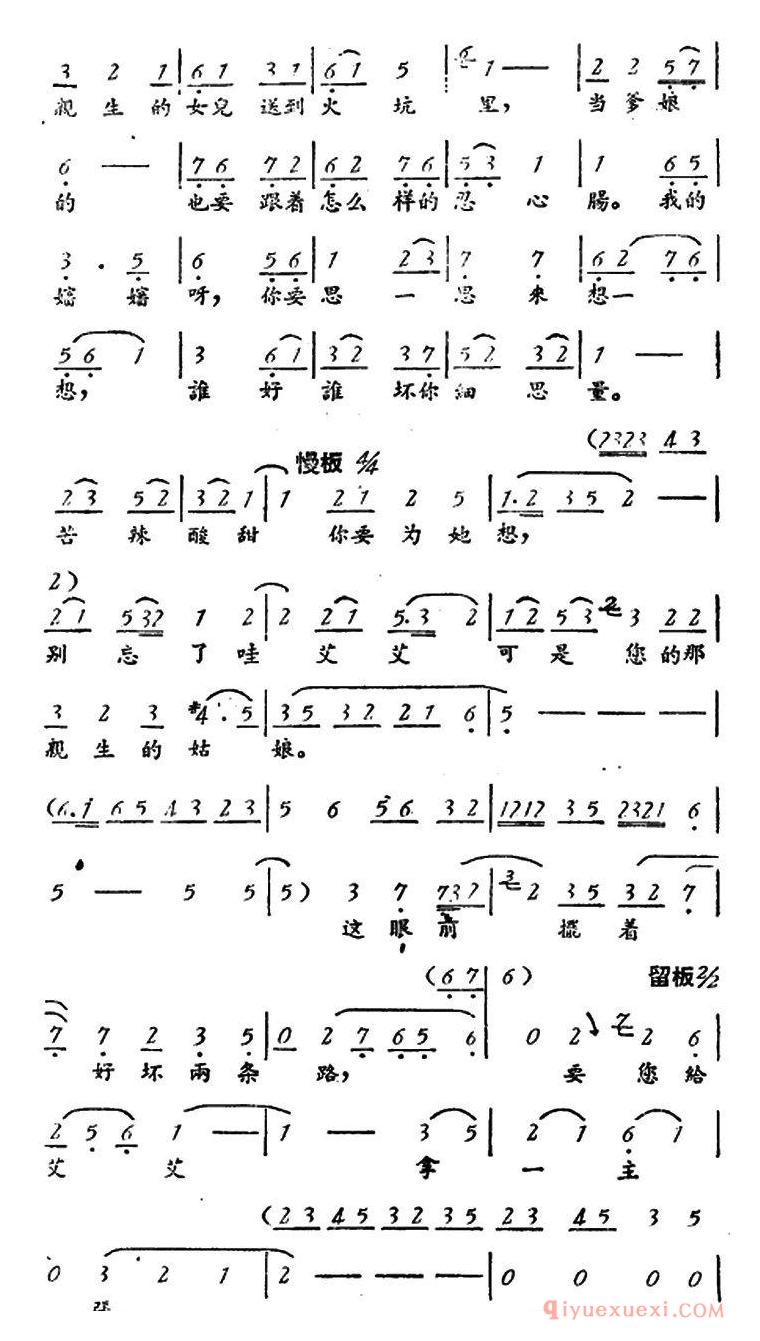 3 2 1 | 6 1 3 1 | 6 1 5 6 | 1 — | 2 2 5 7 |
親生的女兒送到火坑里，当爹娘
6 — | 7 6 7 2 | 6 2 7 6 | 5 3 1 | 1 6 5 |
的也要跟着怎么样的忍心腸。我的
3 . 5 | 6 5 6 | 1 2 3 | 7 7 | 6 2 7 6 |
嬸嬸呀，你要思一思來想一
5 6 1 | 3 6 1 | 3 2 3 7 | 5 2 3 2 | 1 — |
想，誰好誰坏你細思量。
慢板 4/4 (2323 4 3
2 3 5 2 | 3 2 1 | 1 2 1 2 5 | 1.2 3 5 2 — |
苦辣酸甜你要为她想，
2)
2 1 5 32 1 2 | 2 2 1 5.3 2 | 1 2 5 3 2 3 2 2 |
别忘了哇艾艾可是您的那
3 2 3 #4 . 5 | 3 5 3 2 2 1 6 | 5 — — — |
親生的姑娘。
(6.1 6 5 4 3 2 3 | 5 6 5 6 3 2 | 1212 3 5 2321 6
5 — 5 5 | 5) 3 7 732 | 3 2 3 5 3 2 7
这眼前擺着
(6 7 | 6) 留板 2/2
7 7 2 3 5 | 0 2 7 6 5 6 | 0 2 7 2 6 |
好坏兩条路，要您給
2 5 6 1 — | 1 — 3 5 | 2 1 6 1 |
艾艾拿一主
(2 3 4 5 3 2 3 5 2 3 4 5 3 5
0 3 2 1 | 2 — — — | 0 0 0 0 |
張
qiyuexuexi.com